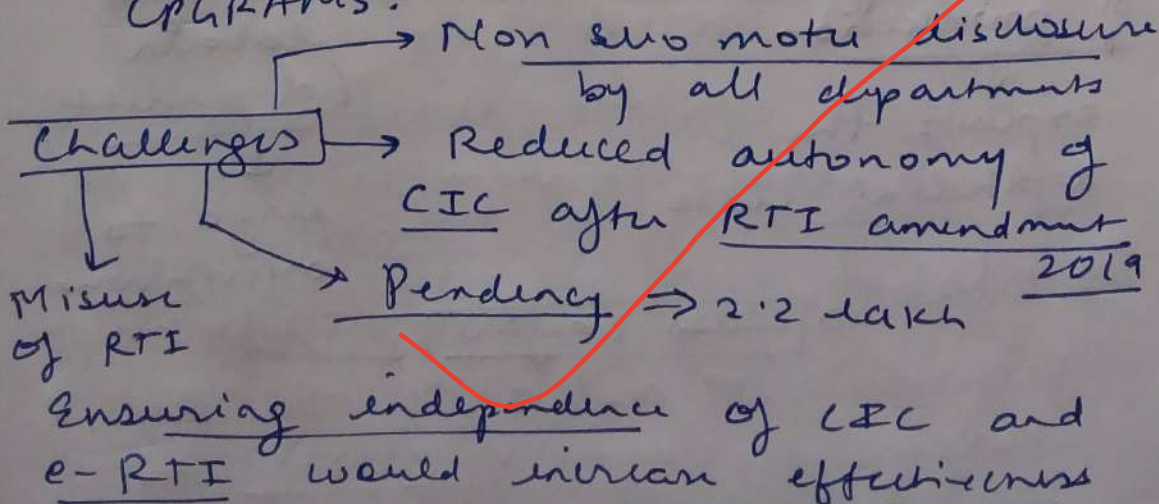 CPGRAMS.
Non suo motu disclosure
by all departments
Challenges
Reduced autonomy of
CIC after RTI amendment
2019
Pendency ⇒ 2.2 lakh
Misuse
of RTI
Ensuring independence of CIC and
e-RTI would increase effectiveness